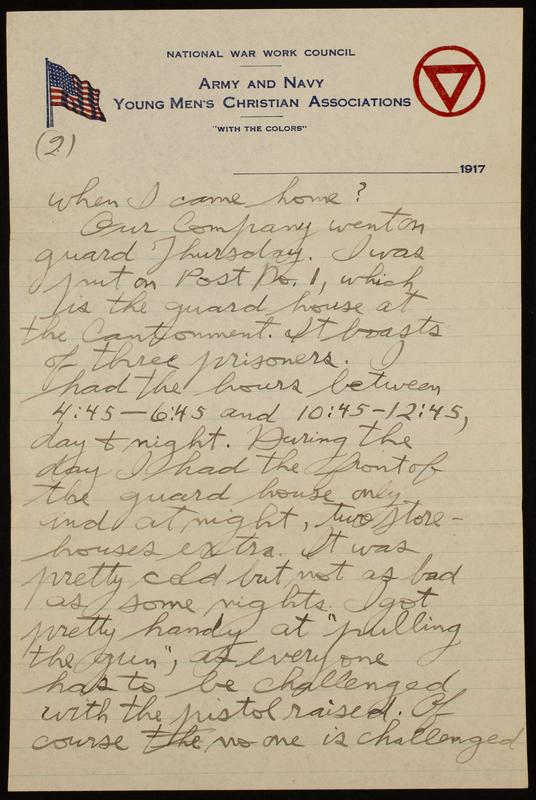 NATIONAL WAR WORK COUNCIL
ARMY AND NAVY
YOUNG MEN'S CHRISTIAN ASSOCIATIONS
"WITH THE COLORS"
(2)
1917
when I came home?
Our Company went on
guard Thursday. I was
put on Post No. 1, which
is the guard house at
the Cantonment. It boasts
of three prisoners. I
had the hours between
4:45-6:45 and 10:45-12:45,
day & night. During the
day I had the front of
the guard house only
and at night, two store-
houses extra. It was
pretty cold but not as bad
as some nights. I got
pretty handy at "pulling
the gun", as everyone
has to be challenged
with the pistol raised. Of
course the no one is challenged